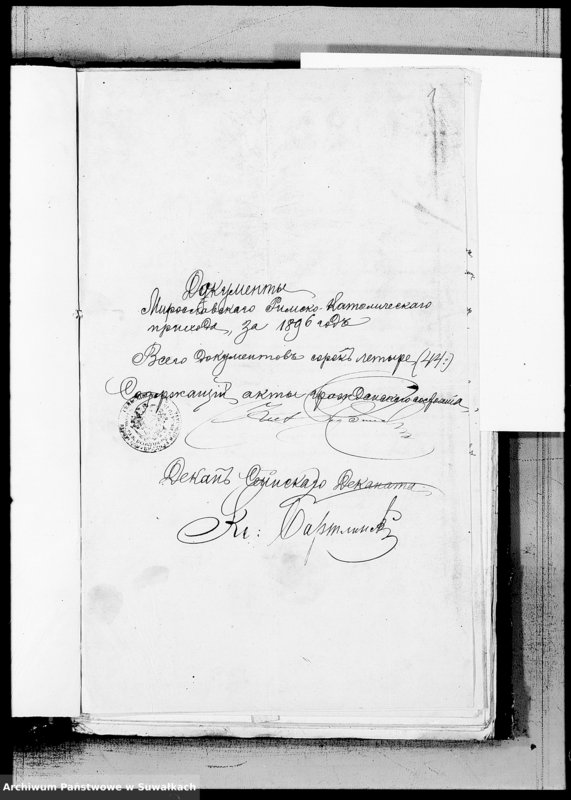 1
Документы
Мирославскаго Римско-Католическаго
прихода, за 1896 годъ
Всего документовъ сорокъ четыре (44.)
Содержащій акты гражданскаго состоянія
Деканъ Сейнскаго Деканата
Кс:
Archiwum Państwowe w Suwałkach